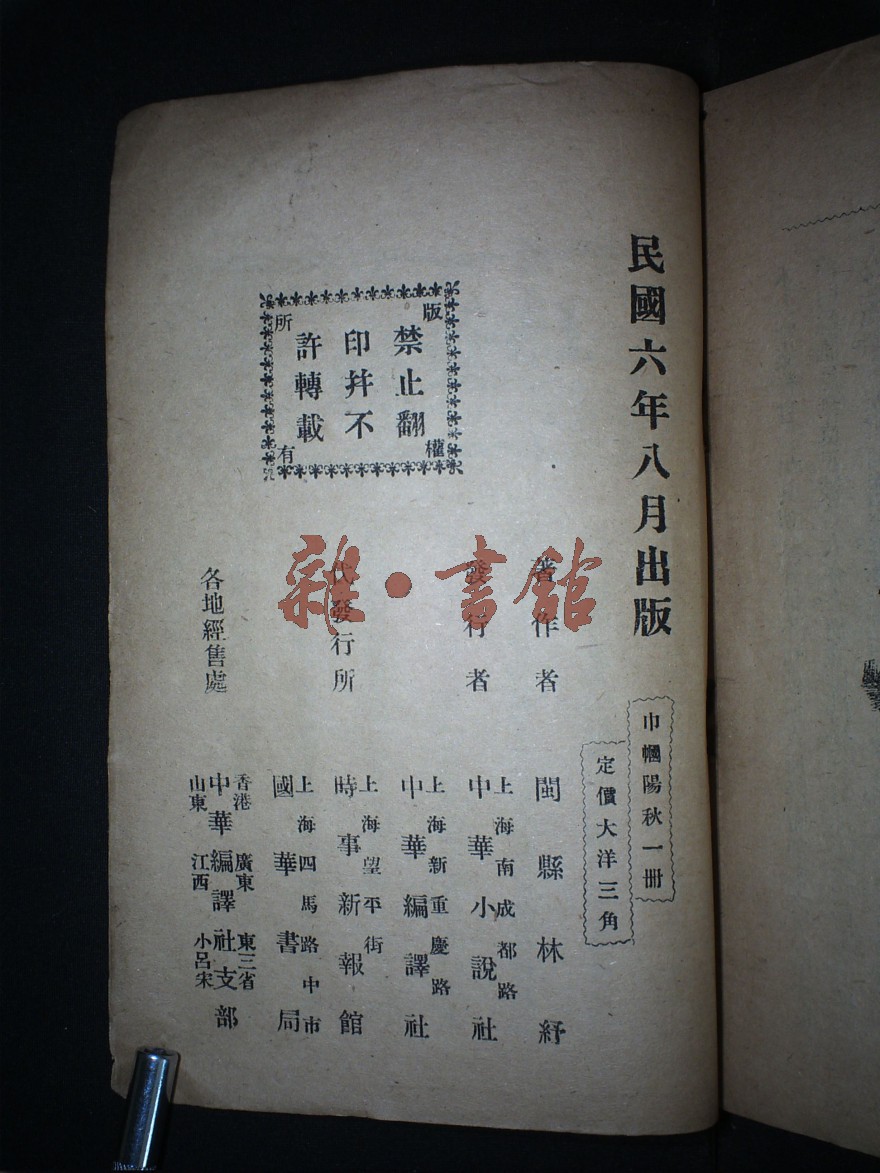 民國六年八月出版
巾幗陽秋一冊
定價大洋三角
版權所有
禁止翻
印幷不
許轉載
著作者
閩縣林紓
發行者
上海南成都路
中華小說社
上海新重慶路
中華編譯社
代發行所
上海望平街
時事新報館
上海四馬路中市
國華書局
各地經售處
香港 廣東 東三省
中華編譯社支部
山東 江西 小呂宋
雜·書館